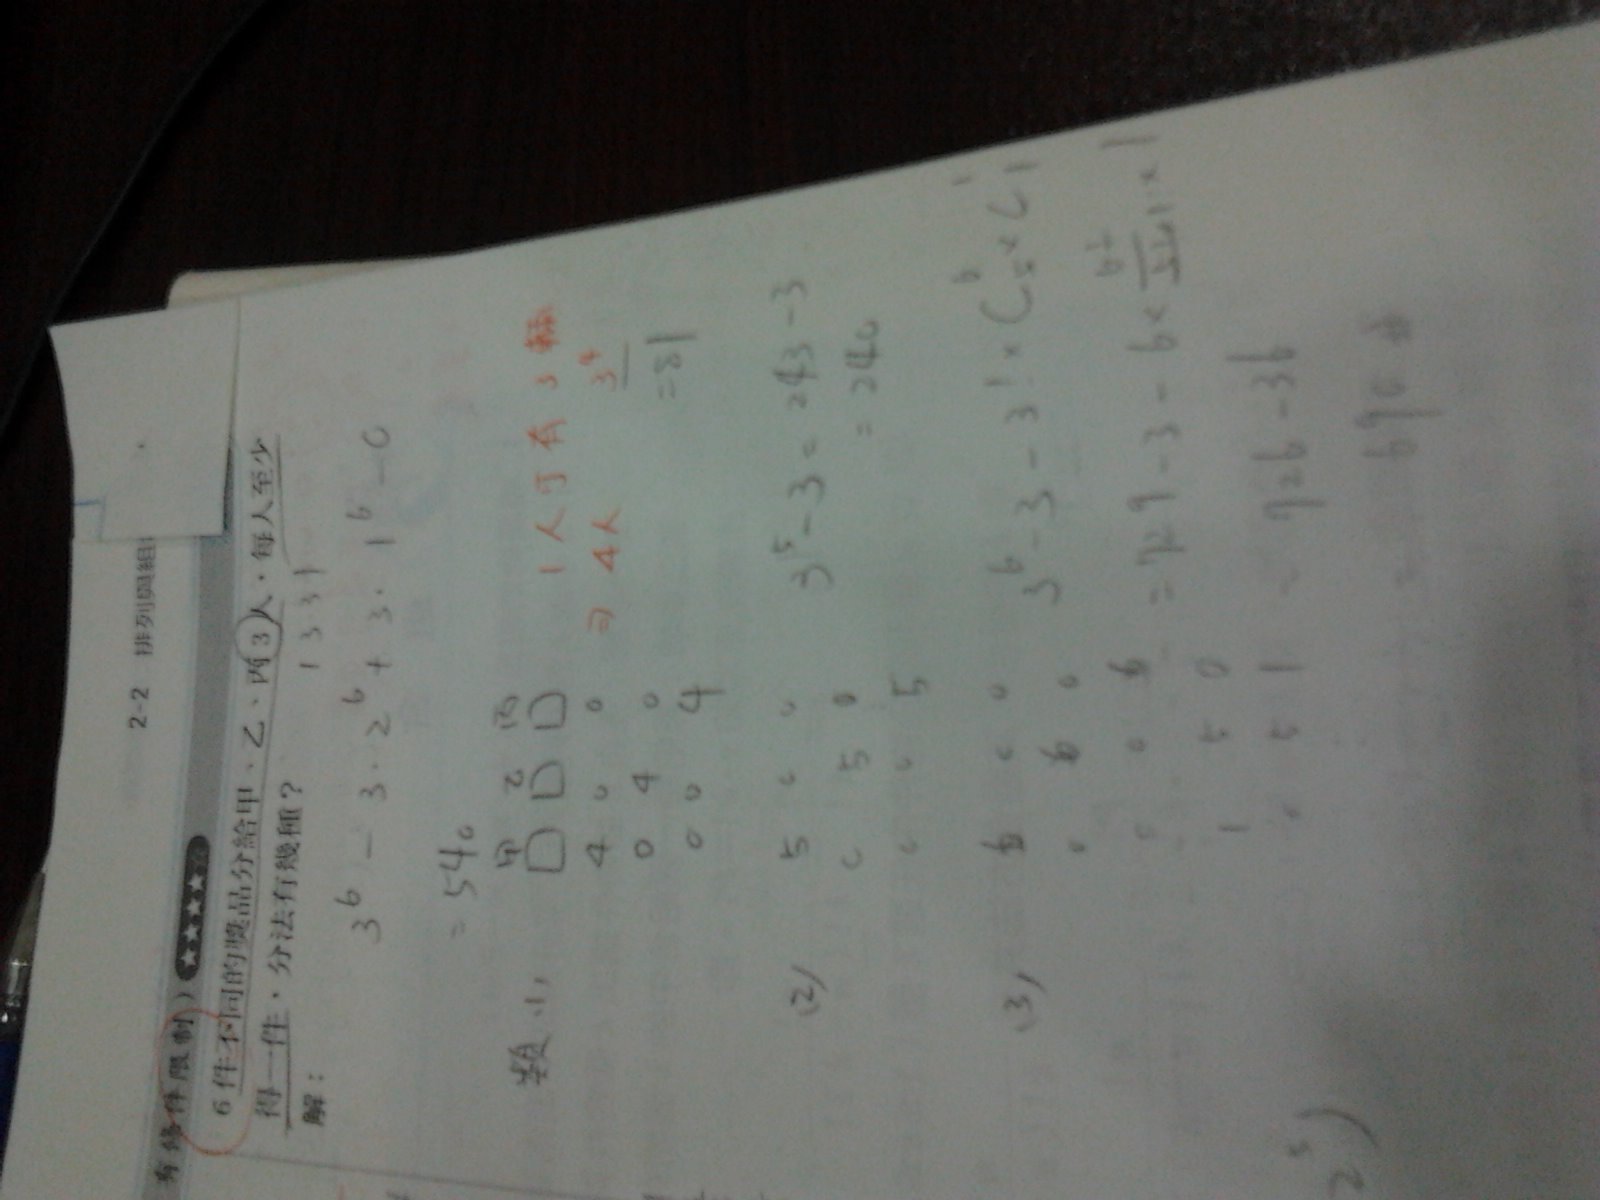 2-2 排列與組
有條件限制) ★★★★☆
6件不同的獎品分給甲、乙、丙3人，每人至少
得一件，分法有幾種？
1 3 3 1
解：
3⁶ - 3・2⁶ + 3・1⁶ - 0
= 540
甲 乙 丙
類(1) □ □ □ 1人可有3種
4 0 0 ⇒ 4人 3⁴
0 4 0 = 81
0 0 4
(2) 5 0 0 3⁵ - 3 = 243 - 3
0 5 0 = 240
0 0 5
(3) 6 0 0 3⁶ - 3 - 3! × C⁶₅ × C¹₁
0 6 0
0 0 6 = 729 - 3 - 6 × 6!/5!1! × 1
1 5 0
0 5 1 = 726 - 36
⋮
= 690
2⁵)